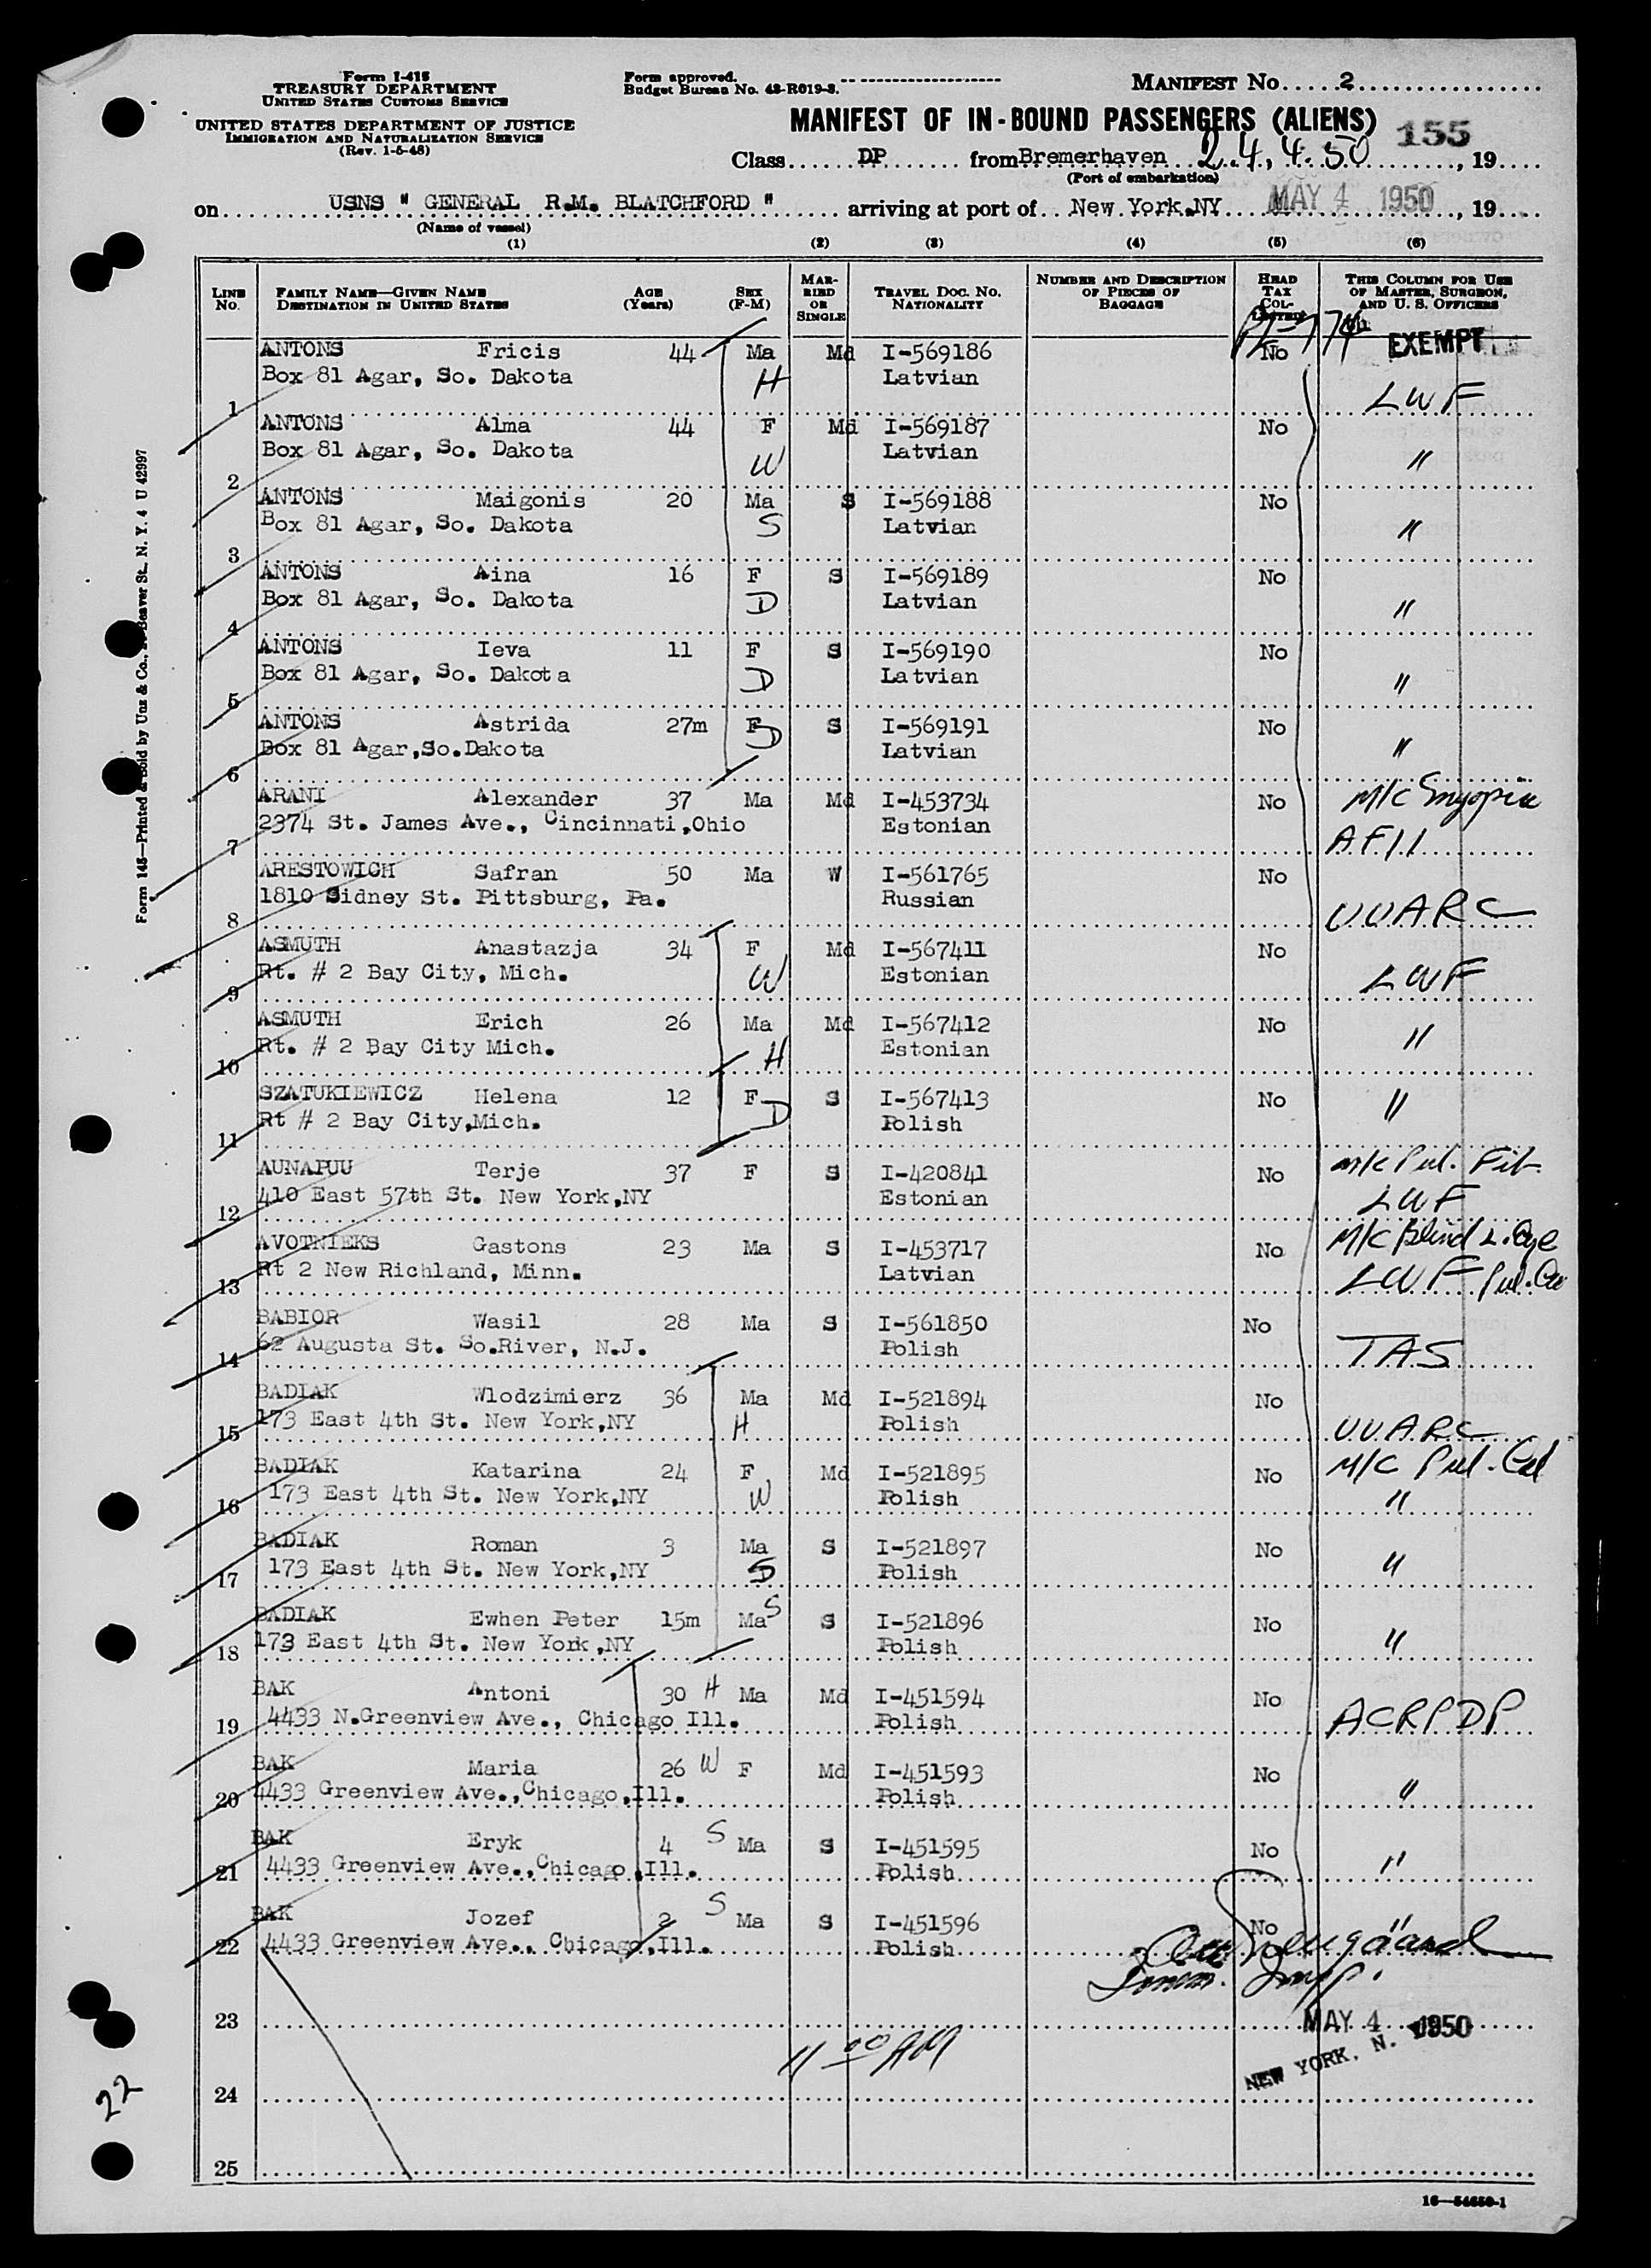 Form I-415
TREASURY DEPARTMENT
UNITED STATES CUSTOMS SERVICE
UNITED STATES DEPARTMENT OF JUSTICE
IMMIGRATION AND NATURALIZATION SERVICE
(Rev. 1-5-48)
Form approved.
Budget Bureau No. 43-R019-3.
MANIFEST No. 2
MANIFEST OF IN-BOUND PASSENGERS (ALIENS) 155
Class DP from Bremerhaven 24.4.50, 19
(Port of embarkation)
on USNS " GENERAL R.M. BLATCHFORD " arriving at port of New York, NY MAY 4 1950, 19
(Name of vessel)
(1) (2) (3) (4) (5) (6)
LINE No. FAMILY NAME—GIVEN NAME DESTINATION IN UNITED STATES AGE (Years) SEX (F-M) MARRIED OR SINGLE TRAVEL DOC. No. NATIONALITY NUMBER AND DESCRIPTION OF PIECES OF BAGGAGE HEAD TAX COLLECTED THIS COLUMN FOR USE OF MASTER, SURGEON, AND U. S. OFFICERS
EXEMPT
ANTONS Fricis 44 Ma Md I-569186 No
1 Box 81 Agar, So. Dakota H Latvian LWF
ANTONS Alma 44 F Md I-569187 No
2 Box 81 Agar, So. Dakota W Latvian "
ANTONS Maigonis 20 Ma S I-569188 No
3 Box 81 Agar, So. Dakota S Latvian "
ANTONS Aina 16 F S I-569189 No
4 Box 81 Agar, So. Dakota D Latvian "
ANTONS Ieva 11 F S I-569190 No
5 Box 81 Agar, So. Dakota D Latvian "
ANTONS Astrida 27m F D S I-569191 No
6 Box 81 Agar,So.Dakota Latvian "
ARANI Alexander 37 Ma Md I-453734 No M/C myopia
7 2374 St. James Ave., Cincinnati,Ohio Estonian AFII
ARESTOWICH Safran 50 Ma W I-561765 No
8 1810 Sidney St. Pittsburg, Pa. Russian UUARC
ASMUTH Anastazja 34 F Md I-567411 No
9 Rt. # 2 Bay City, Mich. W Estonian LWF
ASMUTH Erich 26 Ma Md I-567412 No
10 Rt. # 2 Bay City Mich. H Estonian "
SZATUKIEWICZ Helena 12 F D S I-567413 No
11 Rt # 2 Bay City,Mich. Polish "
AUNAPUU Terje 37 F S I-420841 No M/C Pul. Fib.
12 410 East 57th St. New York,NY Estonian LWF
AVOTNIEKS Gastons 23 Ma S I-453717 No M/C Blind L. Eye
13 Rt 2 New Richland, Minn. Latvian LWF Pul.
BABIOR Wasil 28 Ma S I-561850 No
14 62 Augusta St. So.River, N.J. Polish TAS
BADIAK Wlodzimierz 36 Ma Md I-521894 No
15 173 East 4th St. New York,NY H Polish UUARC
BADIAK Katarina 24 F Md I-521895 No M/C Pul. Cal
16 173 East 4th St. New York,NY W Polish "
BADIAK Roman 3 Ma S I-521897 No
17 173 East 4th St. New York,NY S Polish "
BADIAK Ewhen Peter 15m Ma S S I-521896 No
18 173 East 4th St. New York,NY Polish "
BAK Antoni 30 H Ma Md I-451594 No
19 4433 N.Greenview Ave., Chicago Ill. Polish ACRPDP
BAK Maria 26 W F Md I-451593 No
20 4433 Greenview Ave.,Chicago,Ill. Polish "
BAK Eryk 4 S Ma S I-451595 No
21 4433 Greenview Ave.,Chicago,Ill. Polish "
BAK Jozef 2 S Ma S I-451596 No "
22 4433 Greenview Ave., Chicago,Ill. Polish
Immi. Insp.
23 MAY 4 1950
11 00 AM
NEW YORK, N.
24
25
16—54650-1
22
Form 145—Printed & Sold by Unz & Co., Beaver St., N. Y. 4 U 42997